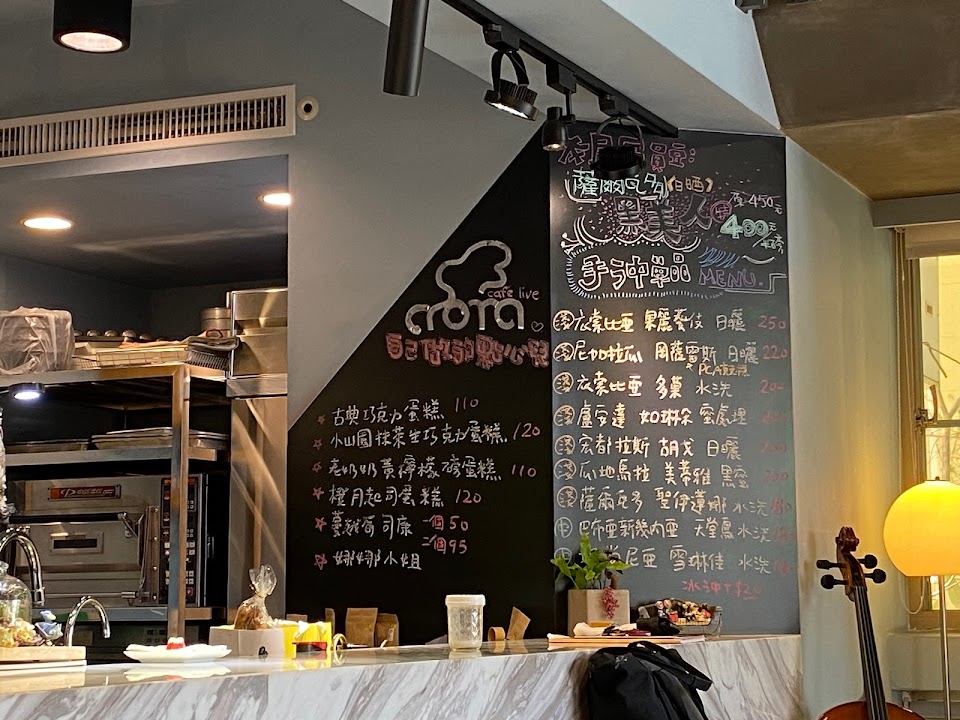 café live
crota
自己做的點心類
古典巧克力蛋糕 110
小山園抹茶生巧克力蛋糕 120
老奶奶黃檸檬磅蛋糕 110
橙月起司蛋糕 120
蔓越莓司康 一個50
二個95
娜娜小姐
本月豆單:
薩爾瓦多《日晒》
黑美人 中
原450元
400元
手沖單品 MENU.
淺 衣索比亞 果麗蔘伎 日曬 250
淺 尼加拉瓜 日曬 220
淺 衣索比亞 多巢 水洗 200
淺 盧安達 如琳朵 蜜處理
淺 宏都拉斯 胡戈 日曬
淺 瓜地馬拉 美蒂雅 黑蜜
淺 薩爾瓦多 聖伊蓮娜 水洗
中 巴布亞新幾內亞 天堂鳥 水洗
尼亞 雪琳佳 水洗
冰沖+$20